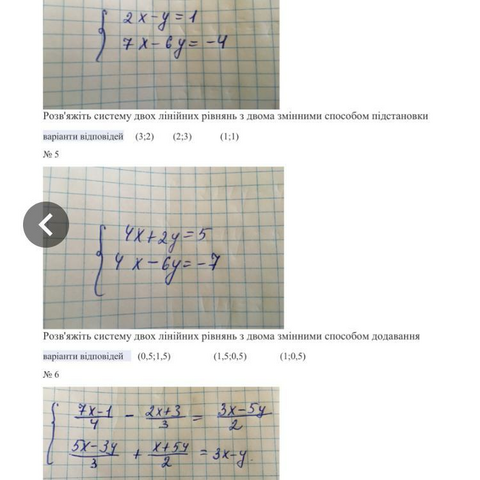 2x-y=1
7x-6y=-4
Розв'яжіть систему двох лінійних рівнянь з двома змінними способом підстановки
варіанти відповідей (3;2) (2;3) (1;1)
№ 5
4x+2y=5
4x-6y=-7
Розв'яжіть систему двох лінійних рівнянь з двома змінними способом додавання
варіанти відповідей (0,5;1,5) (1,5;0,5) (1;0,5)
№ 6
7x-1/4 - 2x+3/3 = 3x-5y/2
5x-3y/3 + x+5y/2 = 3x-y.